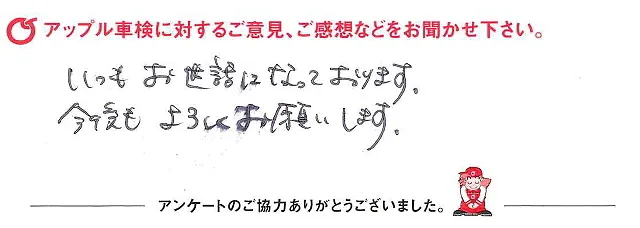 アップル車検に対するご意見、ご感想などをお聞かせ下さい。
いつもお世話になっております。
今後も よろしくお願いします。
アンケートのご協力ありがとうございました。